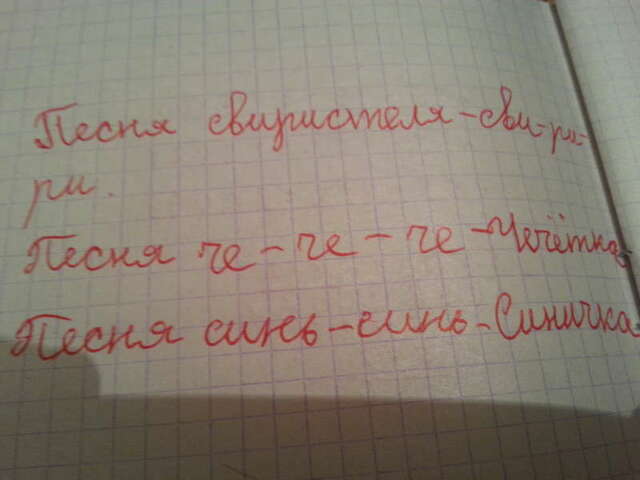 Песня свиристеля - сви-ри-
ри.
Песня че - че - че - Чечётка
Песня синь - синь - Синичка